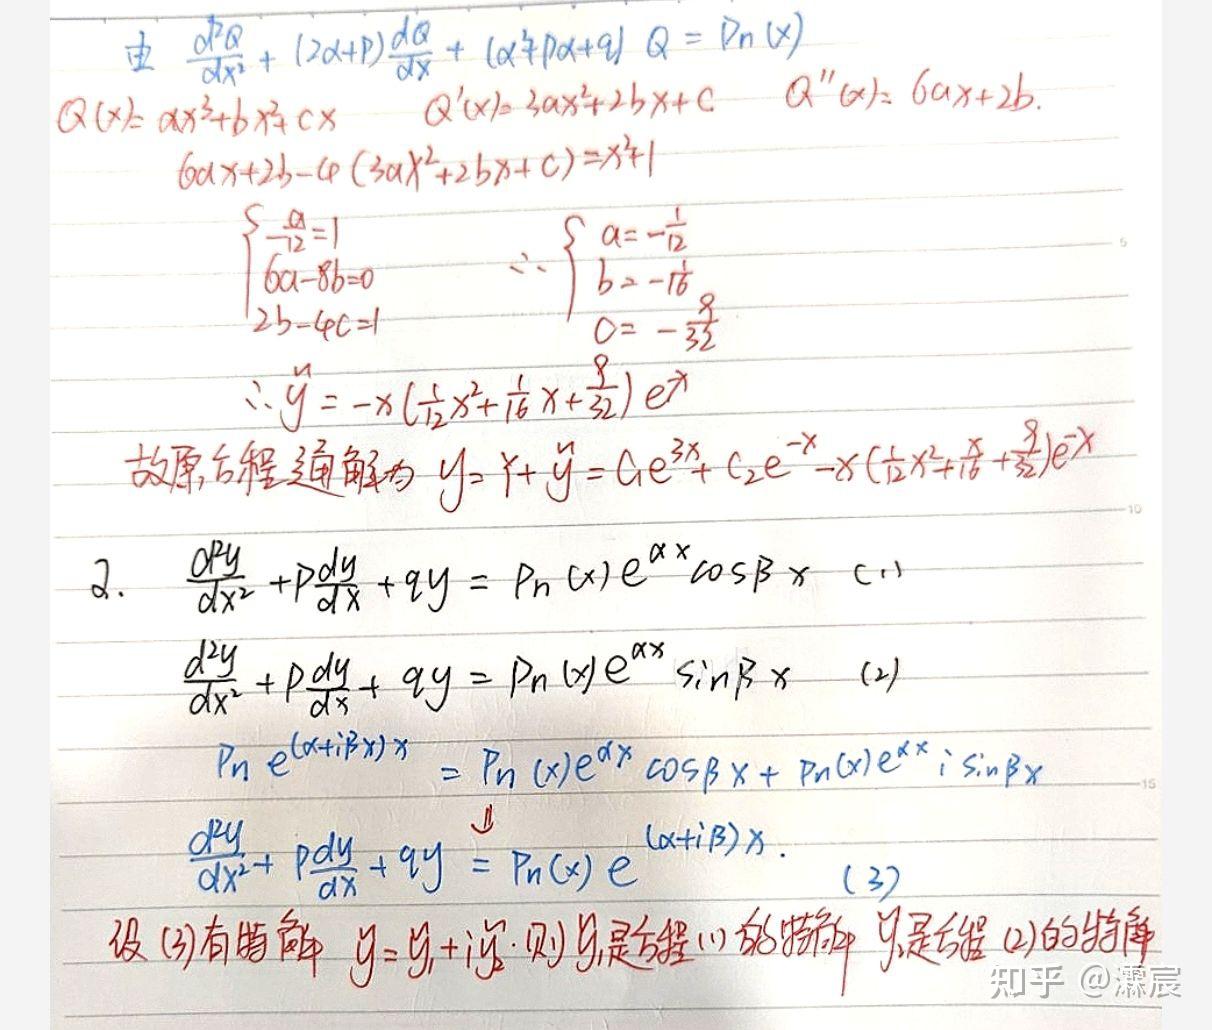 由 d²Q/dx² + (2α+p) dQ/dx + (α²+pα+q) Q = Pn(x)
Q(x)= ax³+bx²+cx Q'(x)= 3ax²+2bx+c Q''(x)= 6ax+2b.
6ax+2b-4(3ax²+2bx+c)=x²+1
{ a/-12=1 ∴ { a=-1/12
6a-8b=0 b=-1/16
2b-4c=1 c=-9/32
∴ ỹ = -x(1/12x²+1/16x+9/32)eˣ
故原方程通解为 y=Y+ỹ=C₁e³ˣ+C₂e⁻ˣ-x(1/12x²+x/16+9/32)e⁻ˣ
2. d²y/dx² + p dy/dx + qy = Pn(x)e^αx cosβx (1)
d²y/dx² + p dy/dx + qy = Pn(x)e^αx sinβx (2)
Pn e^(α+iβx)x = Pn(x)e^αx cosβx + Pn(x)e^αx i sinβx
⇓
d²y/dx² + p dy/dx + qy = Pn(x) e^(α+iβ)x. (3)
设(3)有特解 ỹ=ỹ₁+iỹ₂.则ỹ₁是方程(1)的特解 ỹ₂是方程(2)的特解
知乎 @潇宸
5
10
15